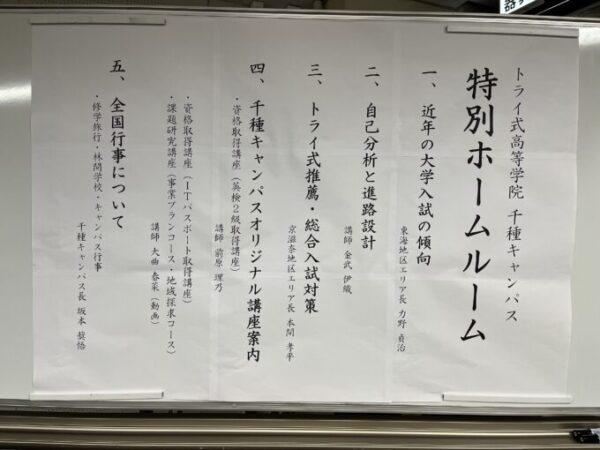 トライ式高等学院 千種キャンパス
特別ホームルーム
一、近年の大学入試の傾向
東海地区エリア長 力野 貞治
二、自己分析と進路設計
講師 金武 伊織
三、トライ式推薦・総合入試対策
京滋奈地区エリア長 本間 孝平
四、千種キャンパスオリジナル講座案内
・資格取得講座（英検２級取得講座）
講師 前原 理乃
・資格取得講座（ＩＴパスポート取得講座）
・課題研究講座（事業プランコース・地域探求コース）
講師 大曲 春菜（動画）
五、全国行事について
・修学旅行・林間学校・キャンパス行事
千種キャンパス長 坂本